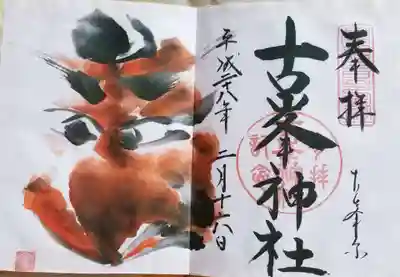 奉拝
古峯原
古峯神社
平成二八年 二月十六日